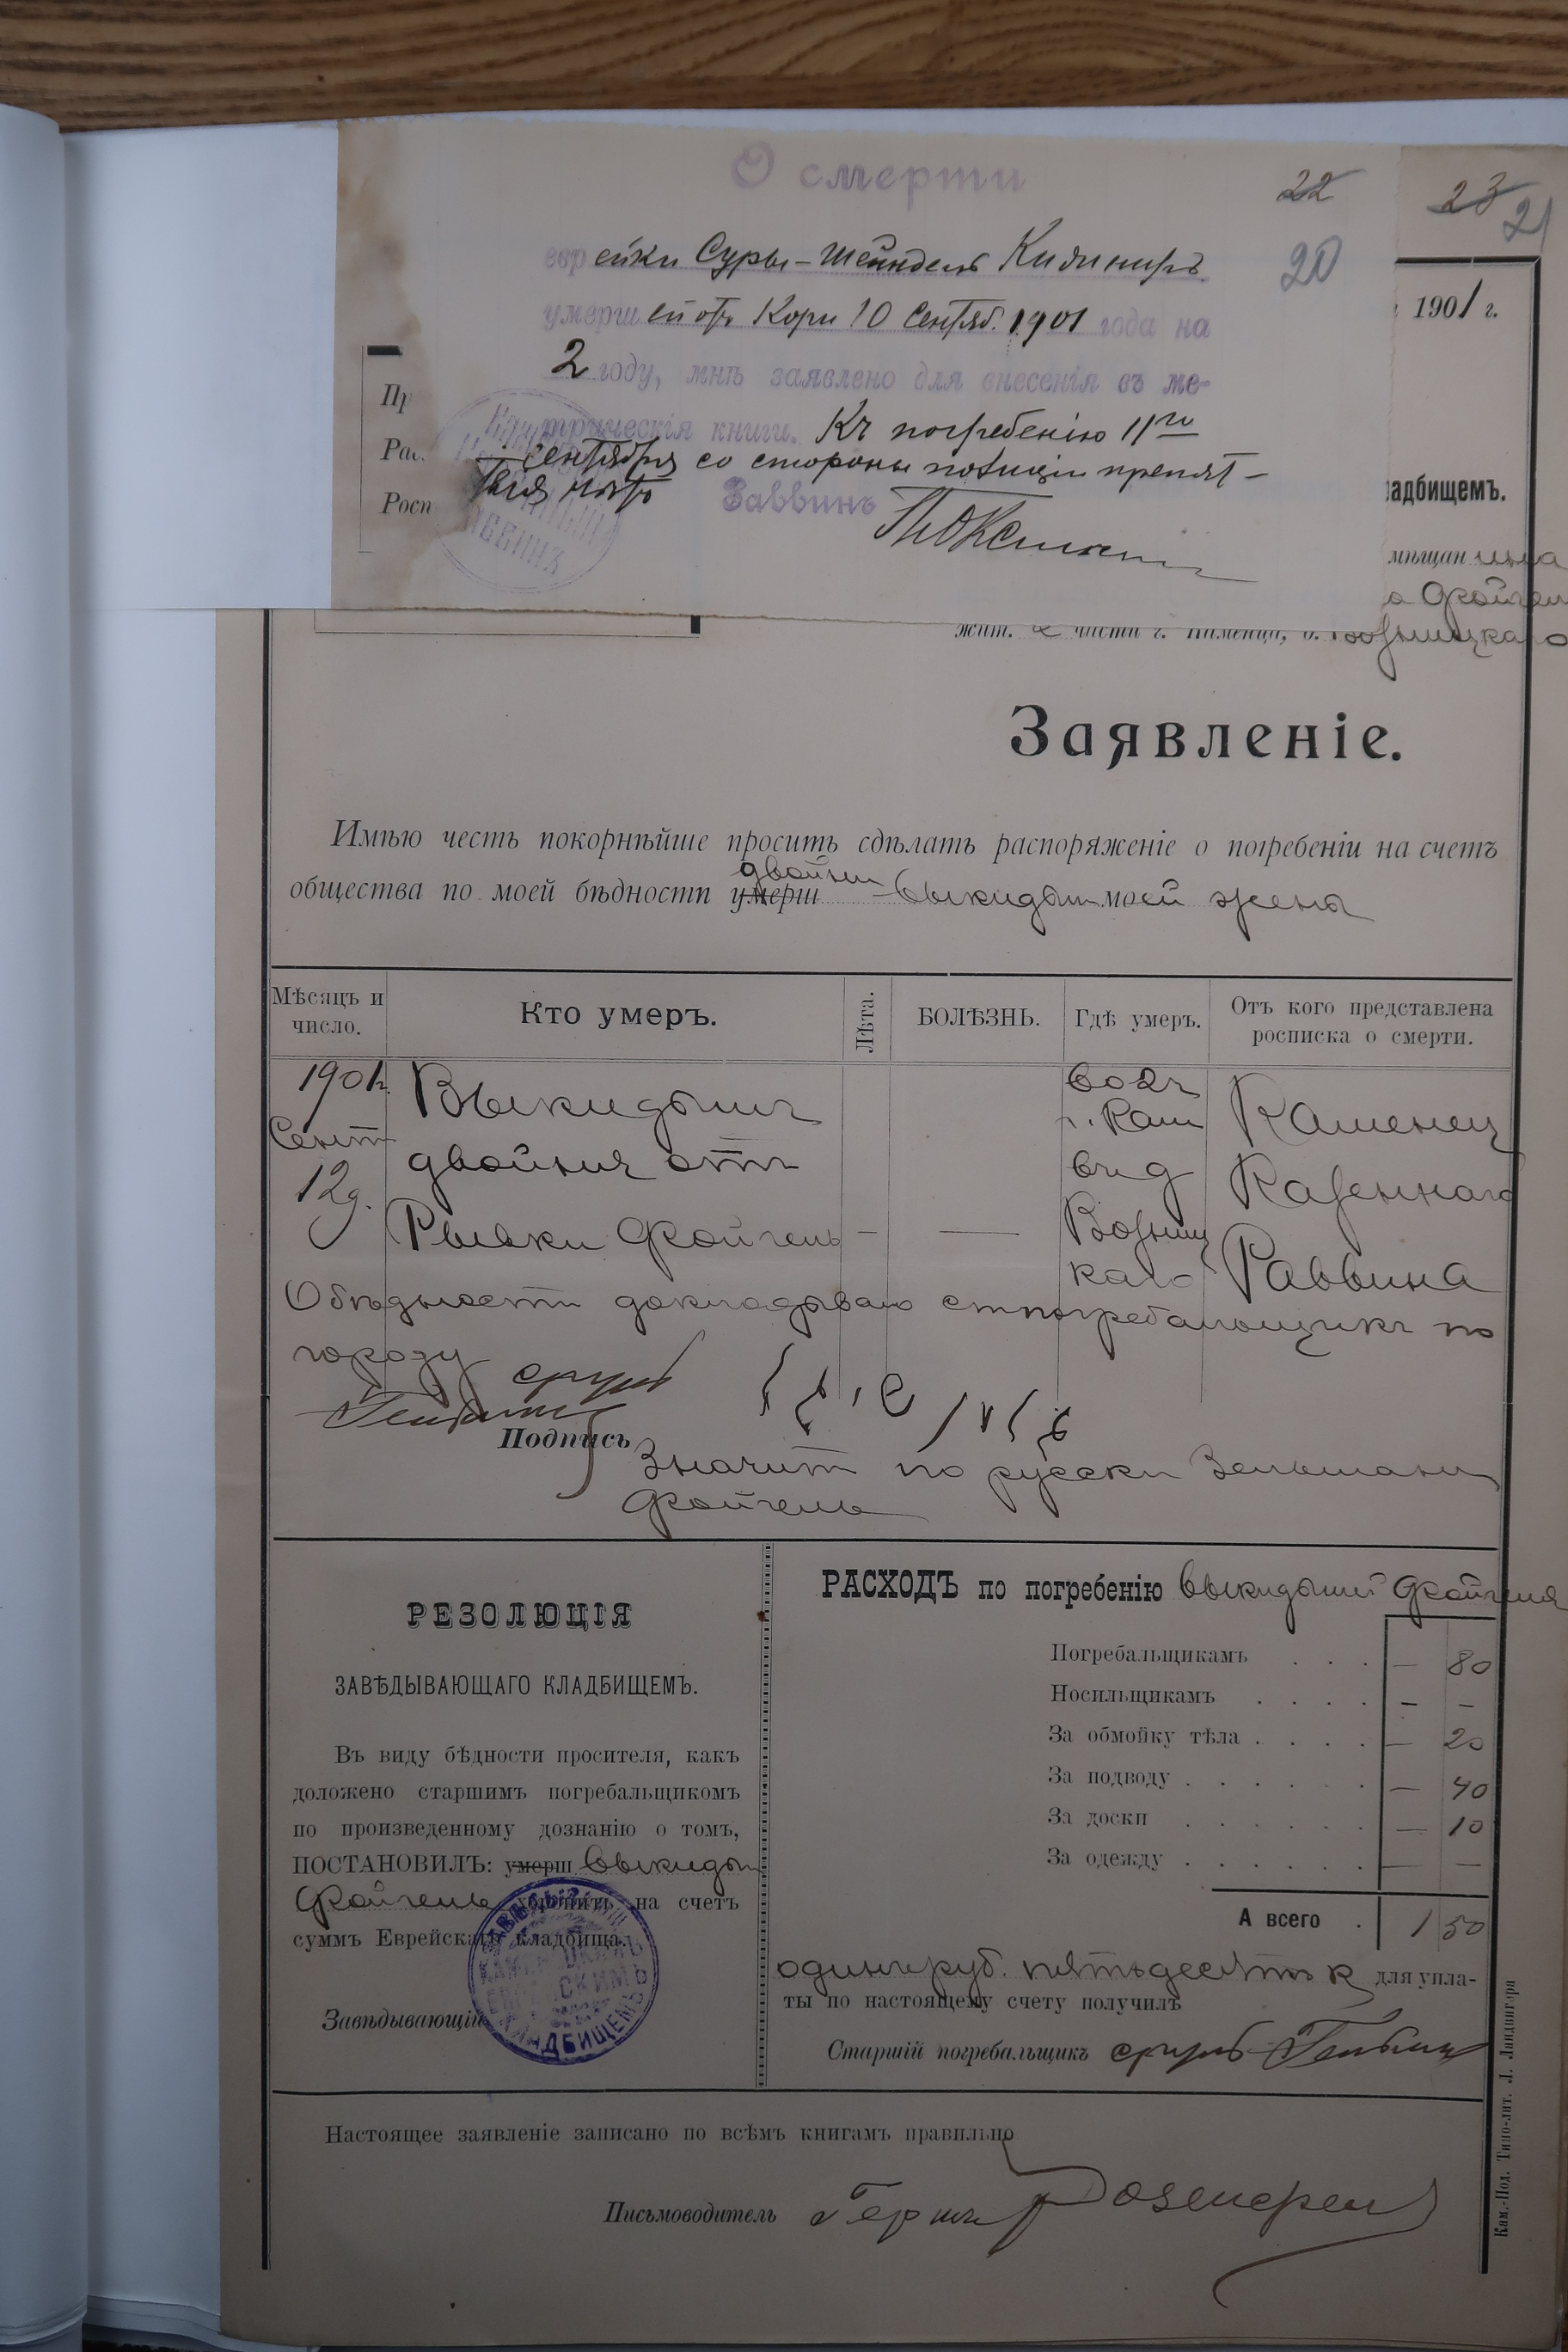 О смерти
22
23
21
еврейки Суры-Шейндель
20
умершей отъ Кори 10 Сентяб. 1901 года на
1901 г.
2 году, мнѣ заявлено для внесенія въ ме-
Пр
трическія книги. Къ погребенію 11го
Рас
сентября со стороны полиціи препят-
ствія нѣтъ Раввинъ
Росп
адбищемъ.
мѣщанина
Фойгель
жит. 2 части г. Каменца, д. Возницкаго
Заявленіе.
Имѣю честь покорнѣйше просить сдѣлать распоряженіе о погребеніи на счетъ
двойни
общества по моей бѣдности умерш выкидыш моей жены
Мѣсяцъ и число.
Кто умеръ.
Лѣта.
БОЛѢЗНЬ.
Гдѣ умеръ.
Отъ кого представлена росписка о смерти.
1901 г.
Сент
12 д.
Выкидышъ
двойня отъ
Рывки Фойгель
—
—
во 2 ч
г. Кам
въ д
Возниц
каго
Каменец
Казеннаго
Раввина
О бѣдности докладываю ст погребальщикъ по
городу
Подпись
Значит по русски Зельманъ
Фойгель
РЕЗОЛЮЦІЯ
ЗАВѢДЫВАЮЩАГО КЛАДБИЩЕМЪ.
Въ виду бѣдности просителя, какъ
доложено старшимъ погребальщикомъ
по произведенному дознанію о томъ,
ПОСТАНОВИЛЪ: умерш выкидыш
Фойгель хоронить на счетъ
суммъ Еврейскаго кладбища.
Завѣдывающій
РАСХОДЪ по погребенію выкидышей Фойгеля
Погребальщикамъ . . . — 80
Носильщикамъ . . . . — —
За обмойку тѣла . . . . — 20
За подводу . . . . . . — 40
За доски . . . . . . — 10
За одежду . . . . . . — —
А всего . 1 50
одинъ руб. пятьдесятъ к для упла-
ты по настоящему счету получилъ
Старшій погребальщикъ
Настоящее заявленіе записано по всѣмъ книгамъ правильно
Письмоводитель Герш
Кам.-Под. Типо-лит. Л. Ландвигера